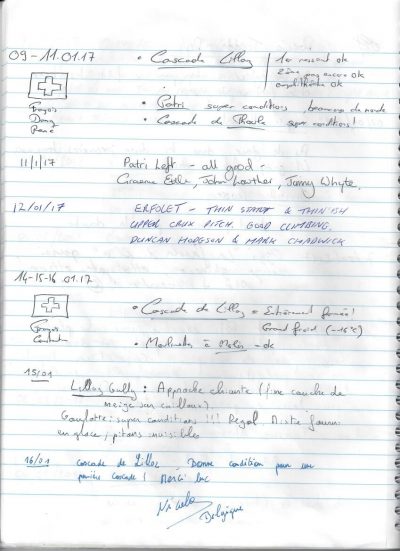 09-11.01.17
• Cascade Lillaz
1er ressaut ok
2ème pas encore ok
amphithéâtre ok
• Patri super conditions, beaucoup de monde
• Cascade de super conditions!
François
Dany
René
11/1/17 Patri Left - all good -
Graeme John Lowther, Jonny Whyte,
12/01/17 ERFOLET - THIN START & THIN ISH
UPPER CRUX PITCH. GOOD CLIMBING.
DUNCAN HODGSON & MARK CHADWICK
14-15-16 01.17
• Cascade de Lillaz = Entièrement formée!
Grand froid (-15°C)
François
• à - ok
15/01
Lillaz Gully : Approche chiante (fine couche de
neige sur cailloux).
Goulotte: super conditions !!! Régal Mixte fourni
en glace, pitons
16/01 cascade de Lillaz, Bonne condition pour une
première cascade! Merci Luc
Nicolas
Belgique